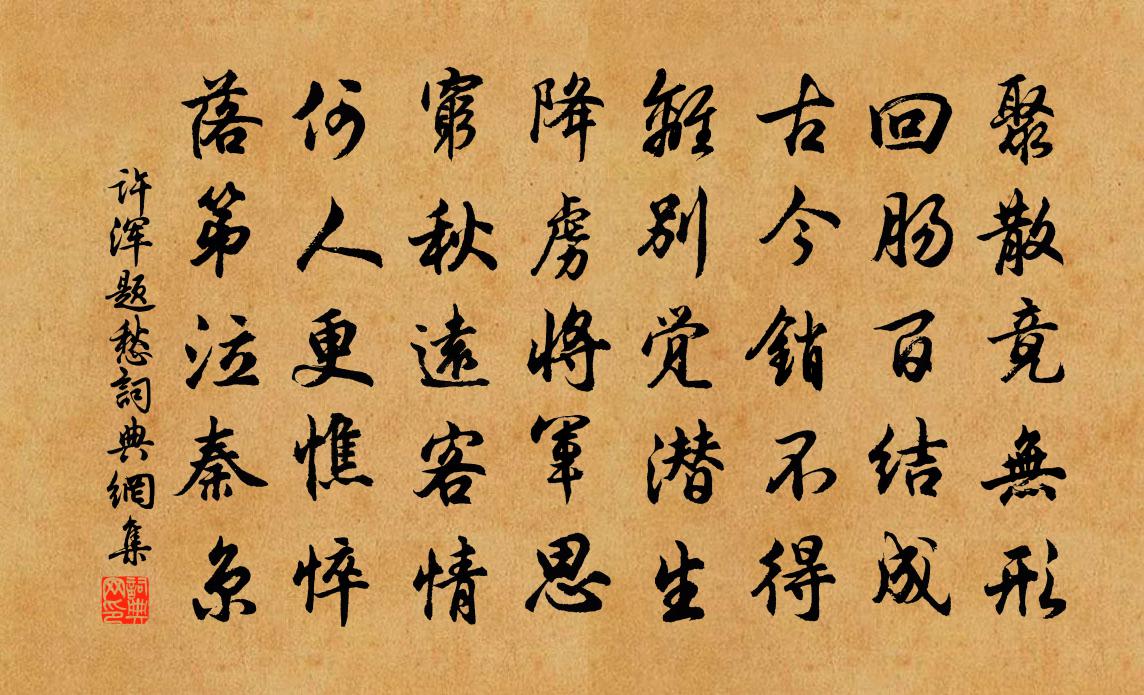 聚散竟無形
回肠百结成
古今銷不得
離别觉潜生
降虏将軍思
窮秋遠客情
何人更憔悴
落第泣秦京
许浑题愁詞典網集
詞典网印